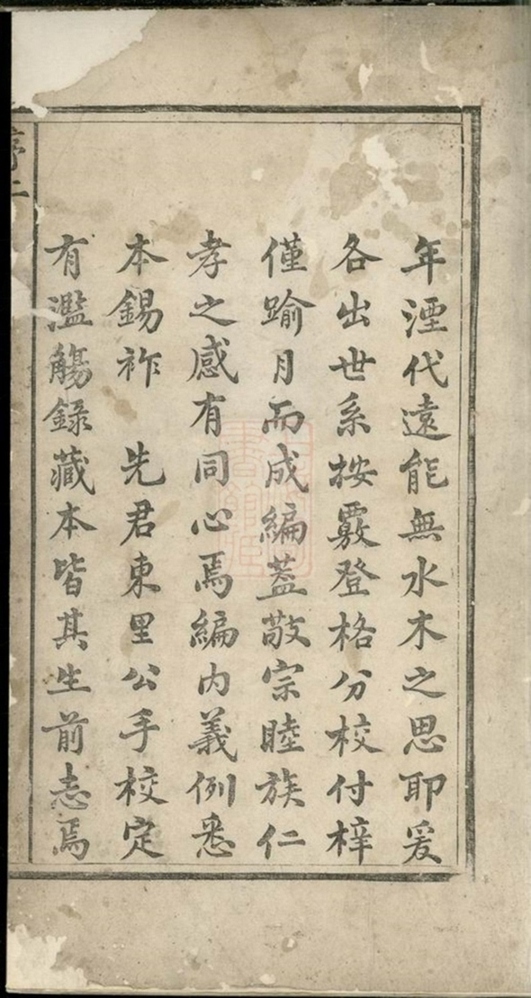 年湮代遠能無水木之思耶爰
各出世系按覈登格分校付梓
僅踰月而成編蓋敬宗睦族仁
孝之感有同心焉編內義例悉
本錫祚 先君東里公手校定
有濫觴錄藏本皆其生前志焉
序二